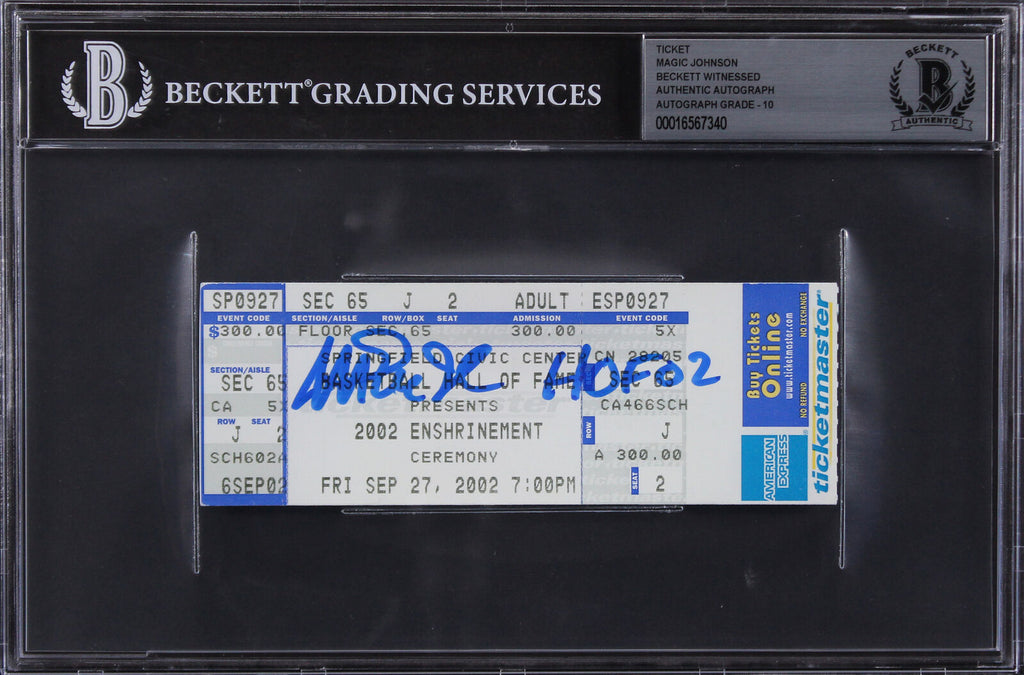 BECKETT® GRADING SERVICES
TICKET
MAGIC JOHNSON
BECKETT WITNESSED
AUTHENTIC AUTOGRAPH
AUTOGRAPH GRADE - 10
00016567340
BECKETT
B
AUTHENTIC
B
SP0927 SEC 65 J 2 ADULT ESP0927
EVENT CODE SECTION/AISLE ROW/BOX SEAT ADMISSION EVENT CODE
$300.00 FLOOR SEC 65 300.00 5X
SPRINGFIELD CIVIC CENTER CN 28205
SECTION/AISLE
SEC 65 BASKETBALL HALL OF FAME SEC 65
HOF 02
CA 5X PRESENTS CA466SCH
ROW SEAT
J 2 2002 ENSHRINEMENT ROW J
SCH602A CEREMONY A 300.00
6SEP02 FRI SEP 27, 2002 7:00PM SEAT 2
Buy Tickets
Online
www.ticketmaster.com
NO REFUND NO EXCHANGE
AMERICAN
EXPRESS
ticketmaster®